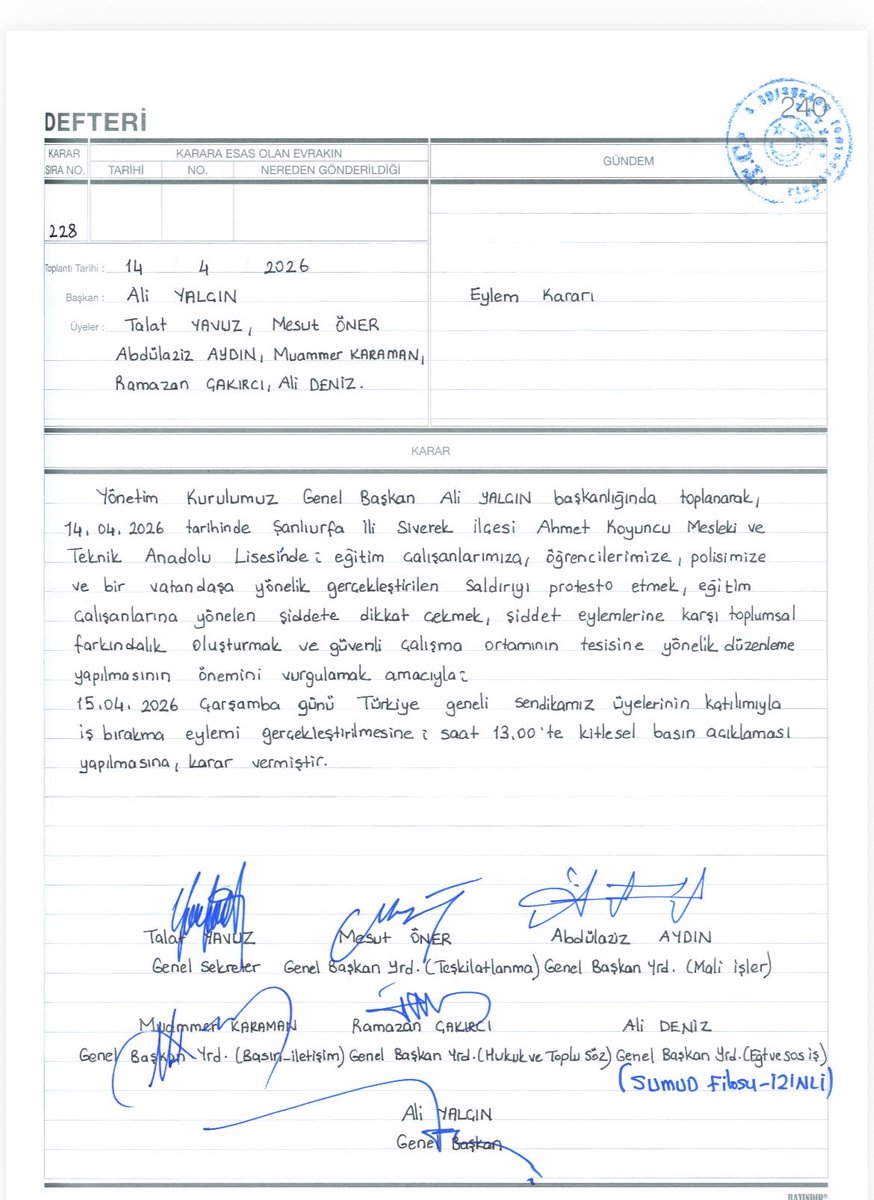 240
DEFTERİ
KARAR SIRA NO.
KARARA ESAS OLAN EVRAKIN
TARİHİ NO. NEREDEN GÖNDERİLDİĞİ
GÜNDEM
228
Toplantı Tarihi : 14 / 4 / 2026
Başkan : Ali YALÇIN
Üyeler : Talat YAVUZ, Mesut ÖNER
Abdülaziz AYDIN, Muammer KARAMAN,
Ramazan ÇAKIRCI, Ali DENİZ.
Eylem Kararı
KARAR
Yönetim Kurulumuz Genel Başkan Ali YALÇIN başkanlığında toplanarak,
14.04.2026 tarihinde Şanlıurfa İli Siverek ilçesi Ahmet Koyuncu Mesleki ve
Teknik Anadolu Lisesi'nde ; eğitim çalışanlarımıza, öğrencilerimize, polisimize
ve bir vatandaşa yönelik gerçekleştirilen saldırıyı protesto etmek, eğitim
çalışanlarına yönelen şiddete dikkat çekmek, şiddet eylemlerine karşı toplumsal
farkındalık oluşturmak ve güvenli çalışma ortamının tesisine yönelik düzenleme
yapılmasının önemini vurgulamak amacıyla;
15.04.2026 Çarşamba günü Türkiye geneli sendikamız üyelerinin katılımıyla
iş bırakma eylemi gerçekleştirilmesine ; saat 13.00'te kitlesel basın açıklaması
yapılmasına, karar vermiştir.
Talat YAVUZ Mesut ÖNER Abdülaziz AYDIN
Genel Sekreter Genel Başkan Yrd. (Teşkilatlanma) Genel Başkan Yrd. (Mali işler)
Muammer KARAMAN Ramazan ÇAKIRCI Ali DENİZ
Genel Başkan Yrd. (Basın-iletişim) Genel Başkan Yrd. (Hukuk ve Toplu Söz) Genel Başkan Yrd. (Eğt ve sos iş)
(SUMUD Filosu-İZİNLİ)
Ali YALÇIN
Genel Başkan
BAYINDIR